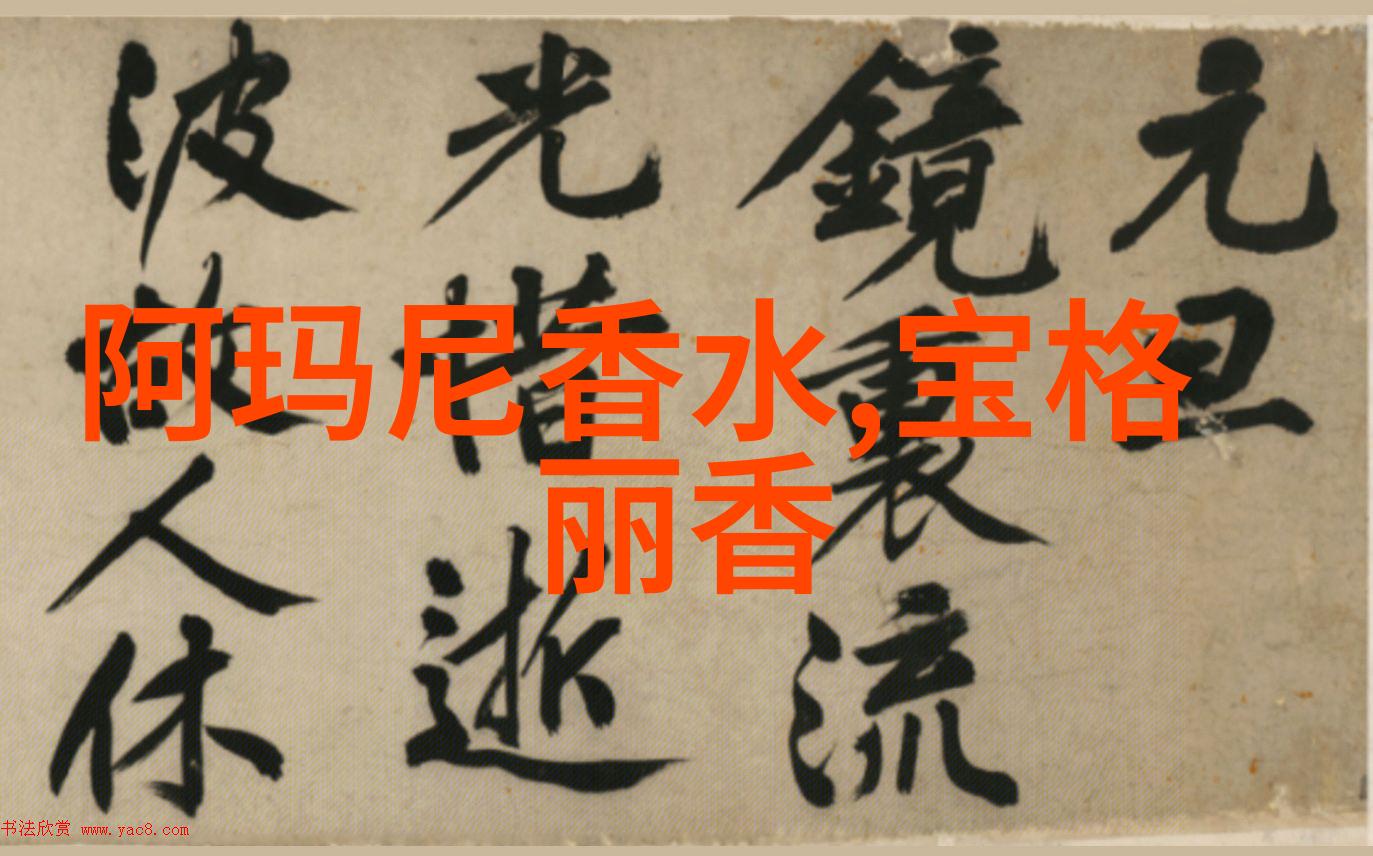 阿玛尼香水,宝格
丽香
元
鏡裏流
光惜逝
波故人休
书法欣赏 www.yac8.com